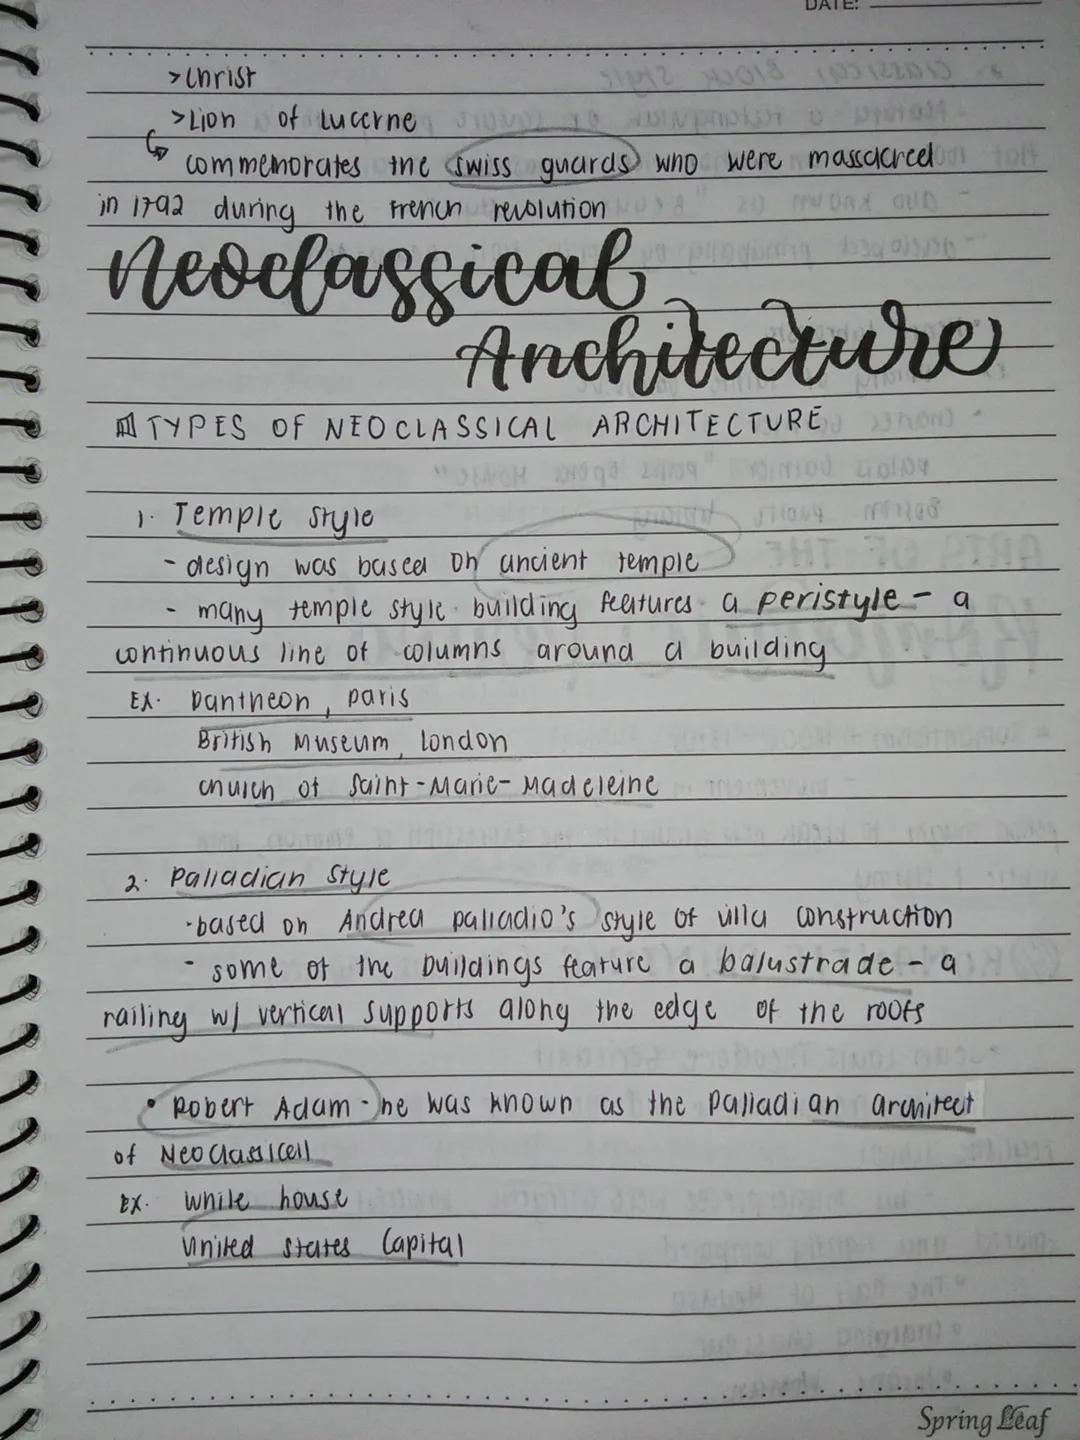 DATE:
> Christ
> Lion of Lucerne
commemorates the swiss guards who were massacred
in 1792 during the French revolution
Neoclassical
Architecture
TYPES OF NEOCLASSICAL ARCHITECTURE
1. Temple Style
- design was based on ancient temple
- many temple style building features a peristyle - a
continuous line of columns around a building
EX. Pantheon, paris
British Museum, London
church of Saint-Marie-Madeleine
2. Palladian Style
- based on Andrea palladio's style of villa construction
- some of the buildings feature a balustrade - a
railing w/ vertical supports along the edge of the roofs
• Robert Adam - he was known as the Palladian architect
of Neoclassicall
EX. white house
United States Capital
Spring Leaf